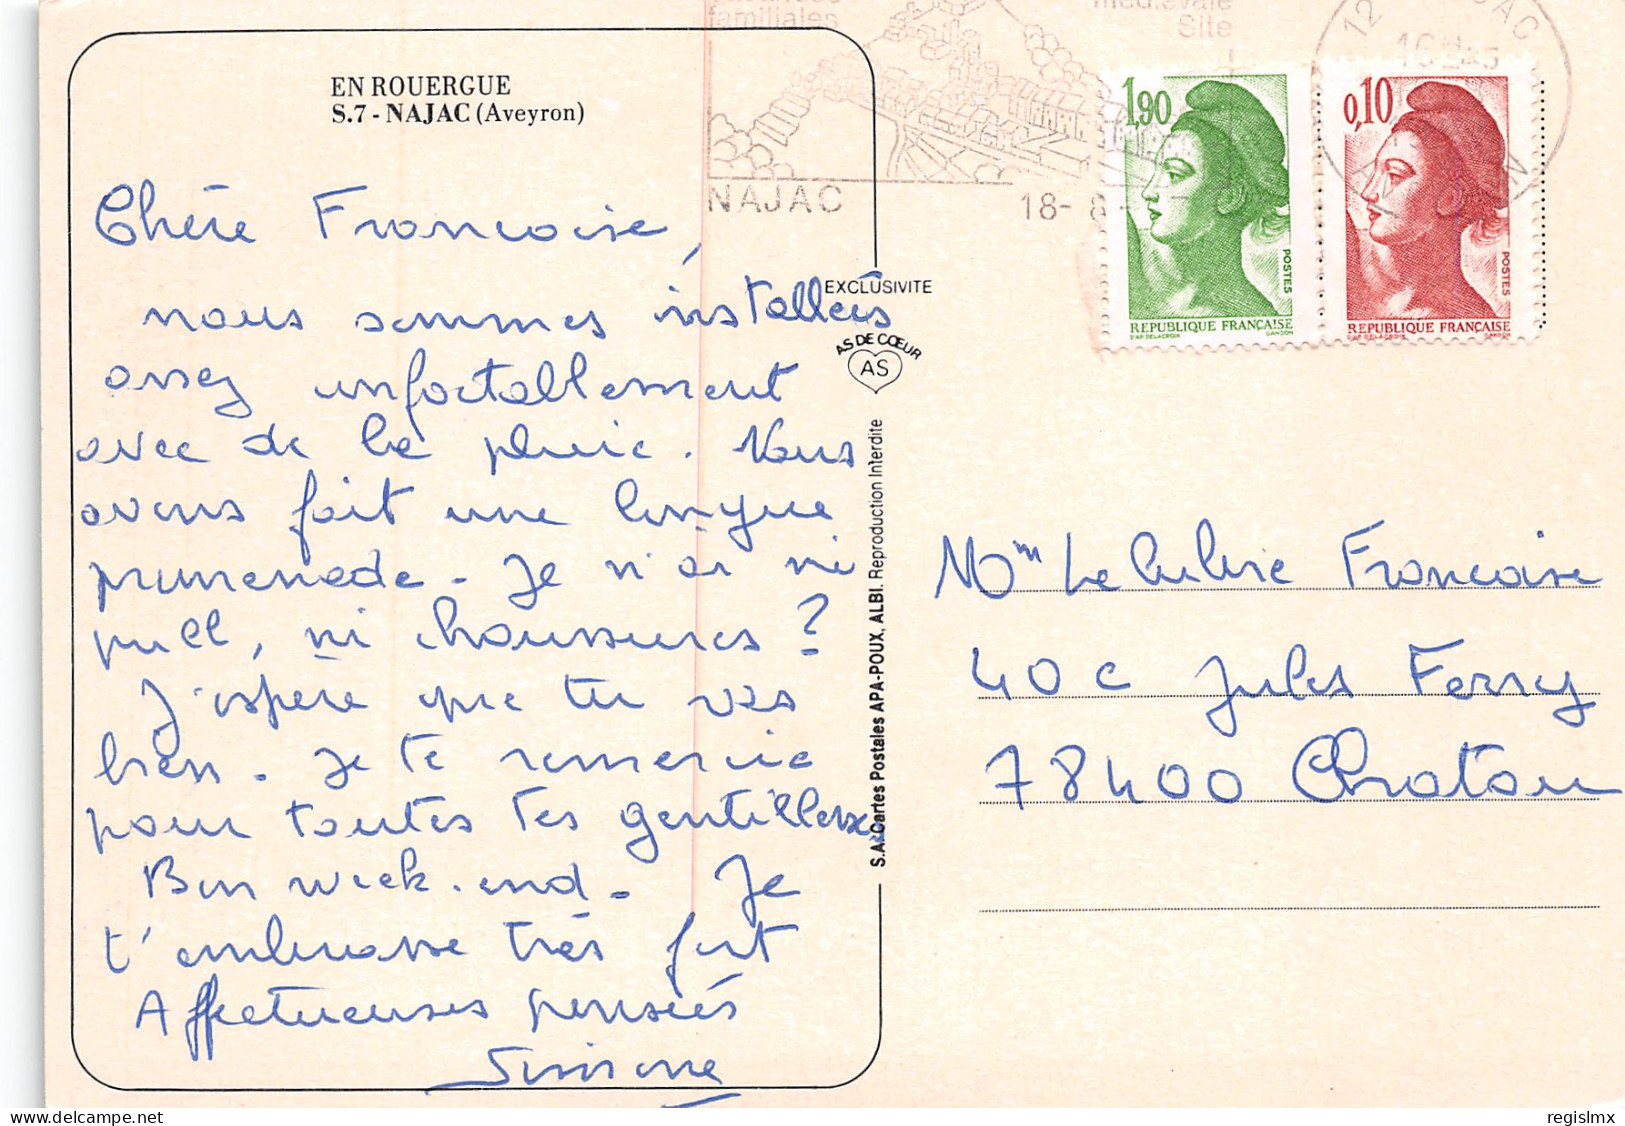 familiales
Site
EN ROUERGUE
S.7 - NAJAC (Aveyron)
NAJAC
18- 8 -
16H45
1,90
POSTES
REPUBLIQUE FRANÇAISE
D'AP. DELACROIX GANDON
0,10
POSTES
REPUBLIQUE FRANÇAISE
D'AP. DELACROIX GANDON
Chère Francoise,
nous sommes installées
assez confortablement
avec de la pluie. Nous
avons fait une longue
promenade. Je n'ai ni
pull, ni chaussures ?
J'espère que tu vas
bien. Je te remercie
pour toutes tes gentillesses
Bon week-end. Je
t'embrasse très fort
Affectueuses pensées
Simone
EXCLUSIVITE
AS DE CŒUR
AS
S.A. Cartes Postales APA-POUX, ALBI. Reproduction Interdite
Mm Francoise
40 c Jules Ferry
78400 Chatou
regislmx
delcampe.net